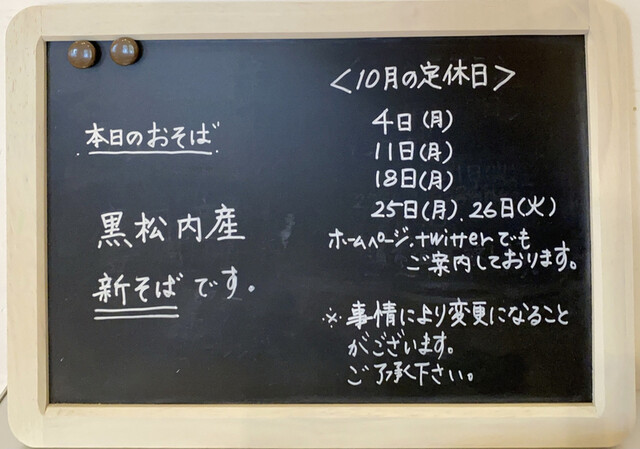 本日のおそば
黒松内産
新そばです。
＜10月の定休日＞
4日(月)
11日(月)
18日(月)
25日(月).26日(火)
ホームページ.twitterでも
ご案内しております。
※事情により変更になること
がございます。
ご了承下さい。